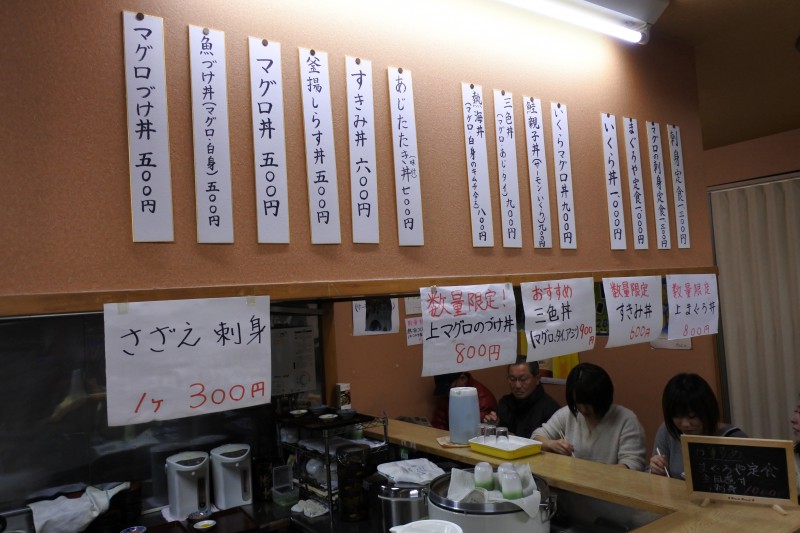 マグロづけ丼 五〇〇円
魚づけ丼(マグロ・白身)五〇〇円
マグロ丼 五〇〇円
釜揚しらす丼 五〇〇円
すきみ丼 六〇〇円
あじたたき丼(味付)七〇〇円
熱海丼(マグロ・白身のキムチあえ)八〇〇円
三色丼(マグロ・あじ・タイ)九〇〇円
鮭親子丼(サーモン・いくら)九〇〇円
いくらマグロ丼 九〇〇円
いくら丼 一〇〇〇円
まぐろや定食 一二〇〇円
マグロの刺身定食 一三〇〇円
刺身定食 一三〇〇円
さざえ 刺身
1ヶ 300円
数量限定!
上マグロのづけ丼
800円
おすすめ
三色丼
(マグロ、タイ、アジ)900円
数量限定
すきみ丼
600円
数量限定
上まぐろ丼
800円
まぐろや定食